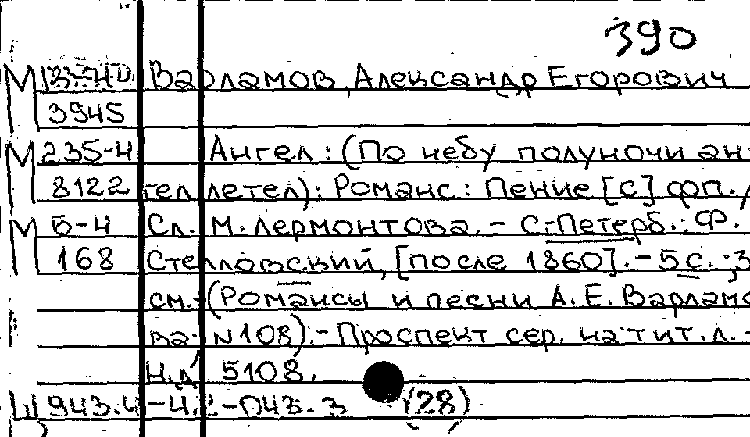 390
М Варламов, Александр Егорович
3945
М 235-4 Ангел: (По небу полуночи ан-
8122 гел летел): Романс: Пение [с] фп. /
М Б-4 Сл. М. Лермонтова. - С.-Петерб.: Ф.
168 Стелловский, [после 1860]. - 5 с.; 3
см. - (Романсы и песни А. Е. Варламо-
ва: N 108). - Проспект сер. на тит. л. -
Н.д. 5108.
Ш 943.4-4.2-П43.3 (28)